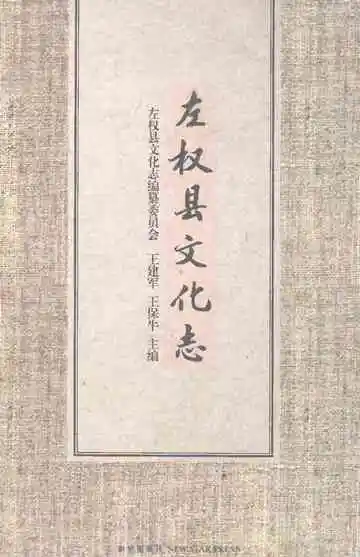 左权县文化志
左权县文化志编纂委员会 王建军 王保牛 主编
新星出版社 NEW STAR PRESS